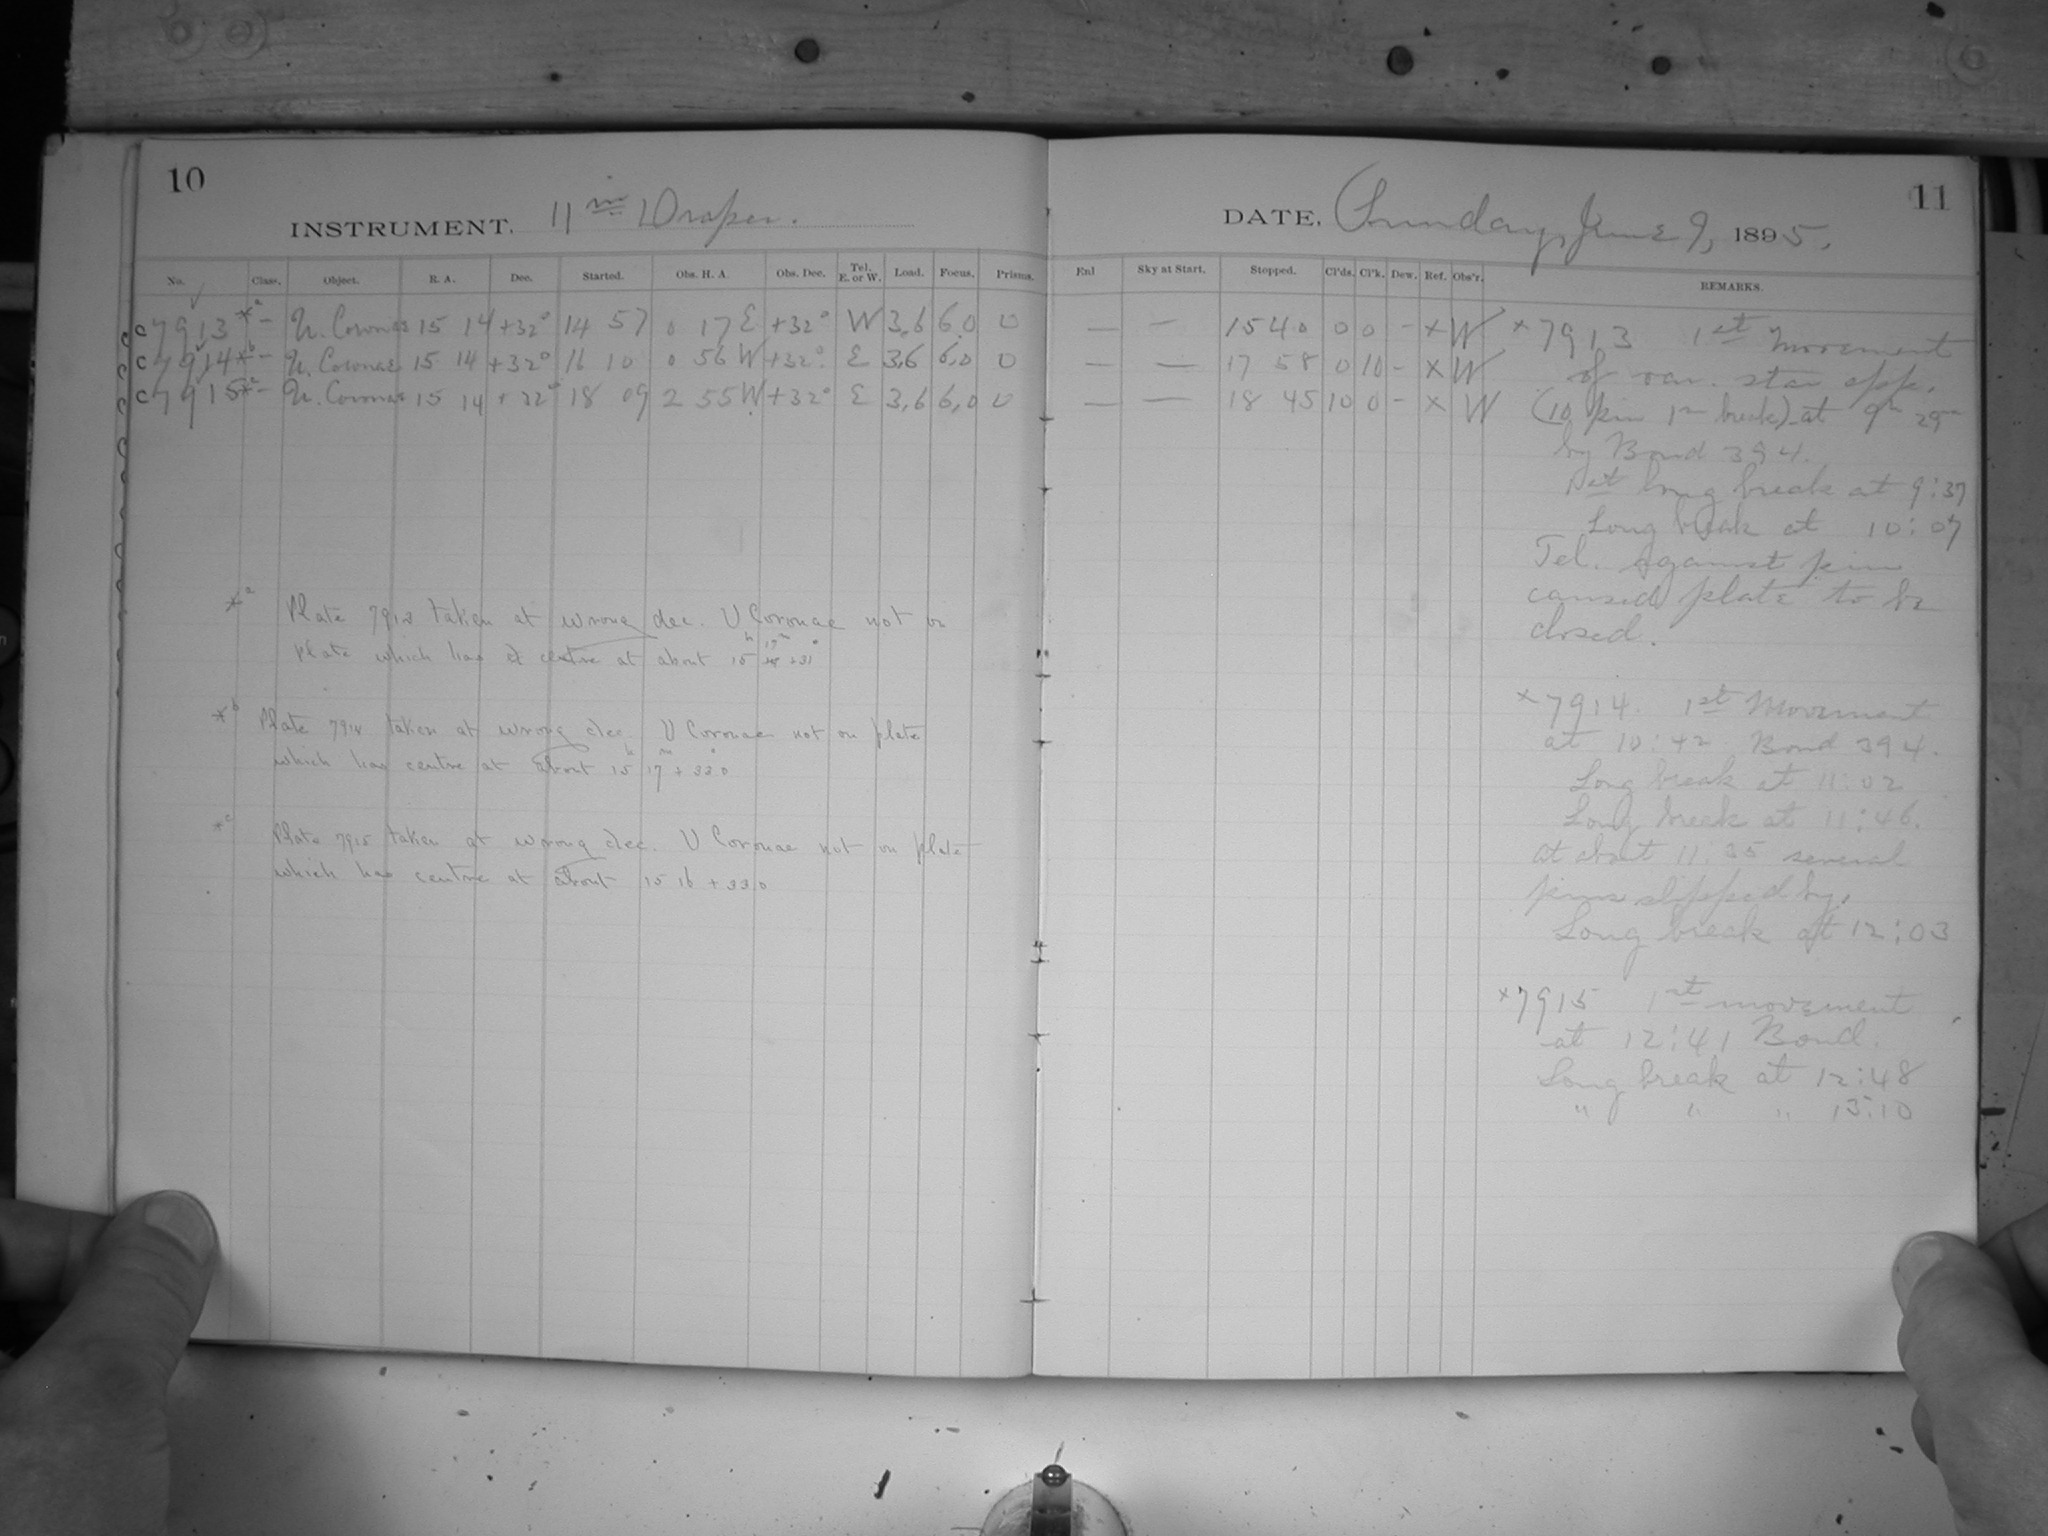 10
INSTRUMENT. 11 in Draper.
No. Class. Object. R. A. Dec. Started. Obs. H. A. Obs. Dec. Tel. E. or W. Load. Focus. Prisms.
C 7913 *a – U. Coronae 15 14 +32° 14 57 0 17 E +32° W 3.6 6.0 0
C 7914 *b – U. Coronae 15 14 +32° 16 10 0 56 W +32° E 3.6 6.0 0
C 7915 *c – U. Coronae 15 14 +32° 18 09 2 55 W +32° E 3.6 6.0 0
*a Plate 7913 taken at wrong dec. U Coronae not on
plate which has centre at about 15h 17m +31°
*b Plate 7914 taken at wrong dec. U Coronae not on plate
which has centre at about 15h 17m +33°.0
*c Plate 7915 taken at wrong dec. U Coronae not on plate
which has centre at about 15 16 +33.0
11
DATE, Sunday, June 9, 1895.
Enl Sky at Start. Stopped. Cl'ds. Cl'k. Dew. Ref. Obs'r. REMARKS.
— — 15 40 0 0 – x W
— — 17 58 0 10 – x W
— — 18 45 10 0 – x W
x 7913 1st Movement
of var. star app.
(10 pin 1m break) at 9h 29m
by Bond 394.
1st long break at 9:37
Long break at 10:07
Tel. against pier
caused plate to be
closed.
x 7914. 1st Movement
at 10:42 Bond 394.
Long break at 11:02
Long break at 11:46.
at about 11:35 several
pins slipped by.
Long break at 12:03
x 7915 1st movement
at 12:41 Bond.
Long break at 12:48
" " " 13:10